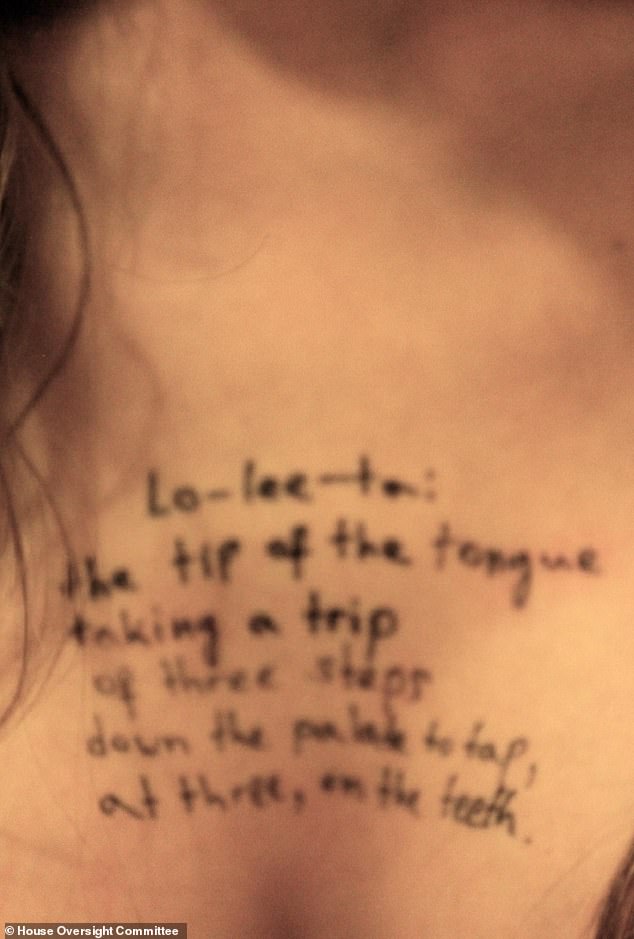 Lo-lee-ta:
the tip of the tongue
taking a trip
of three steps
down the palate to tap,
at three, on the teeth.
© House Oversight Committee